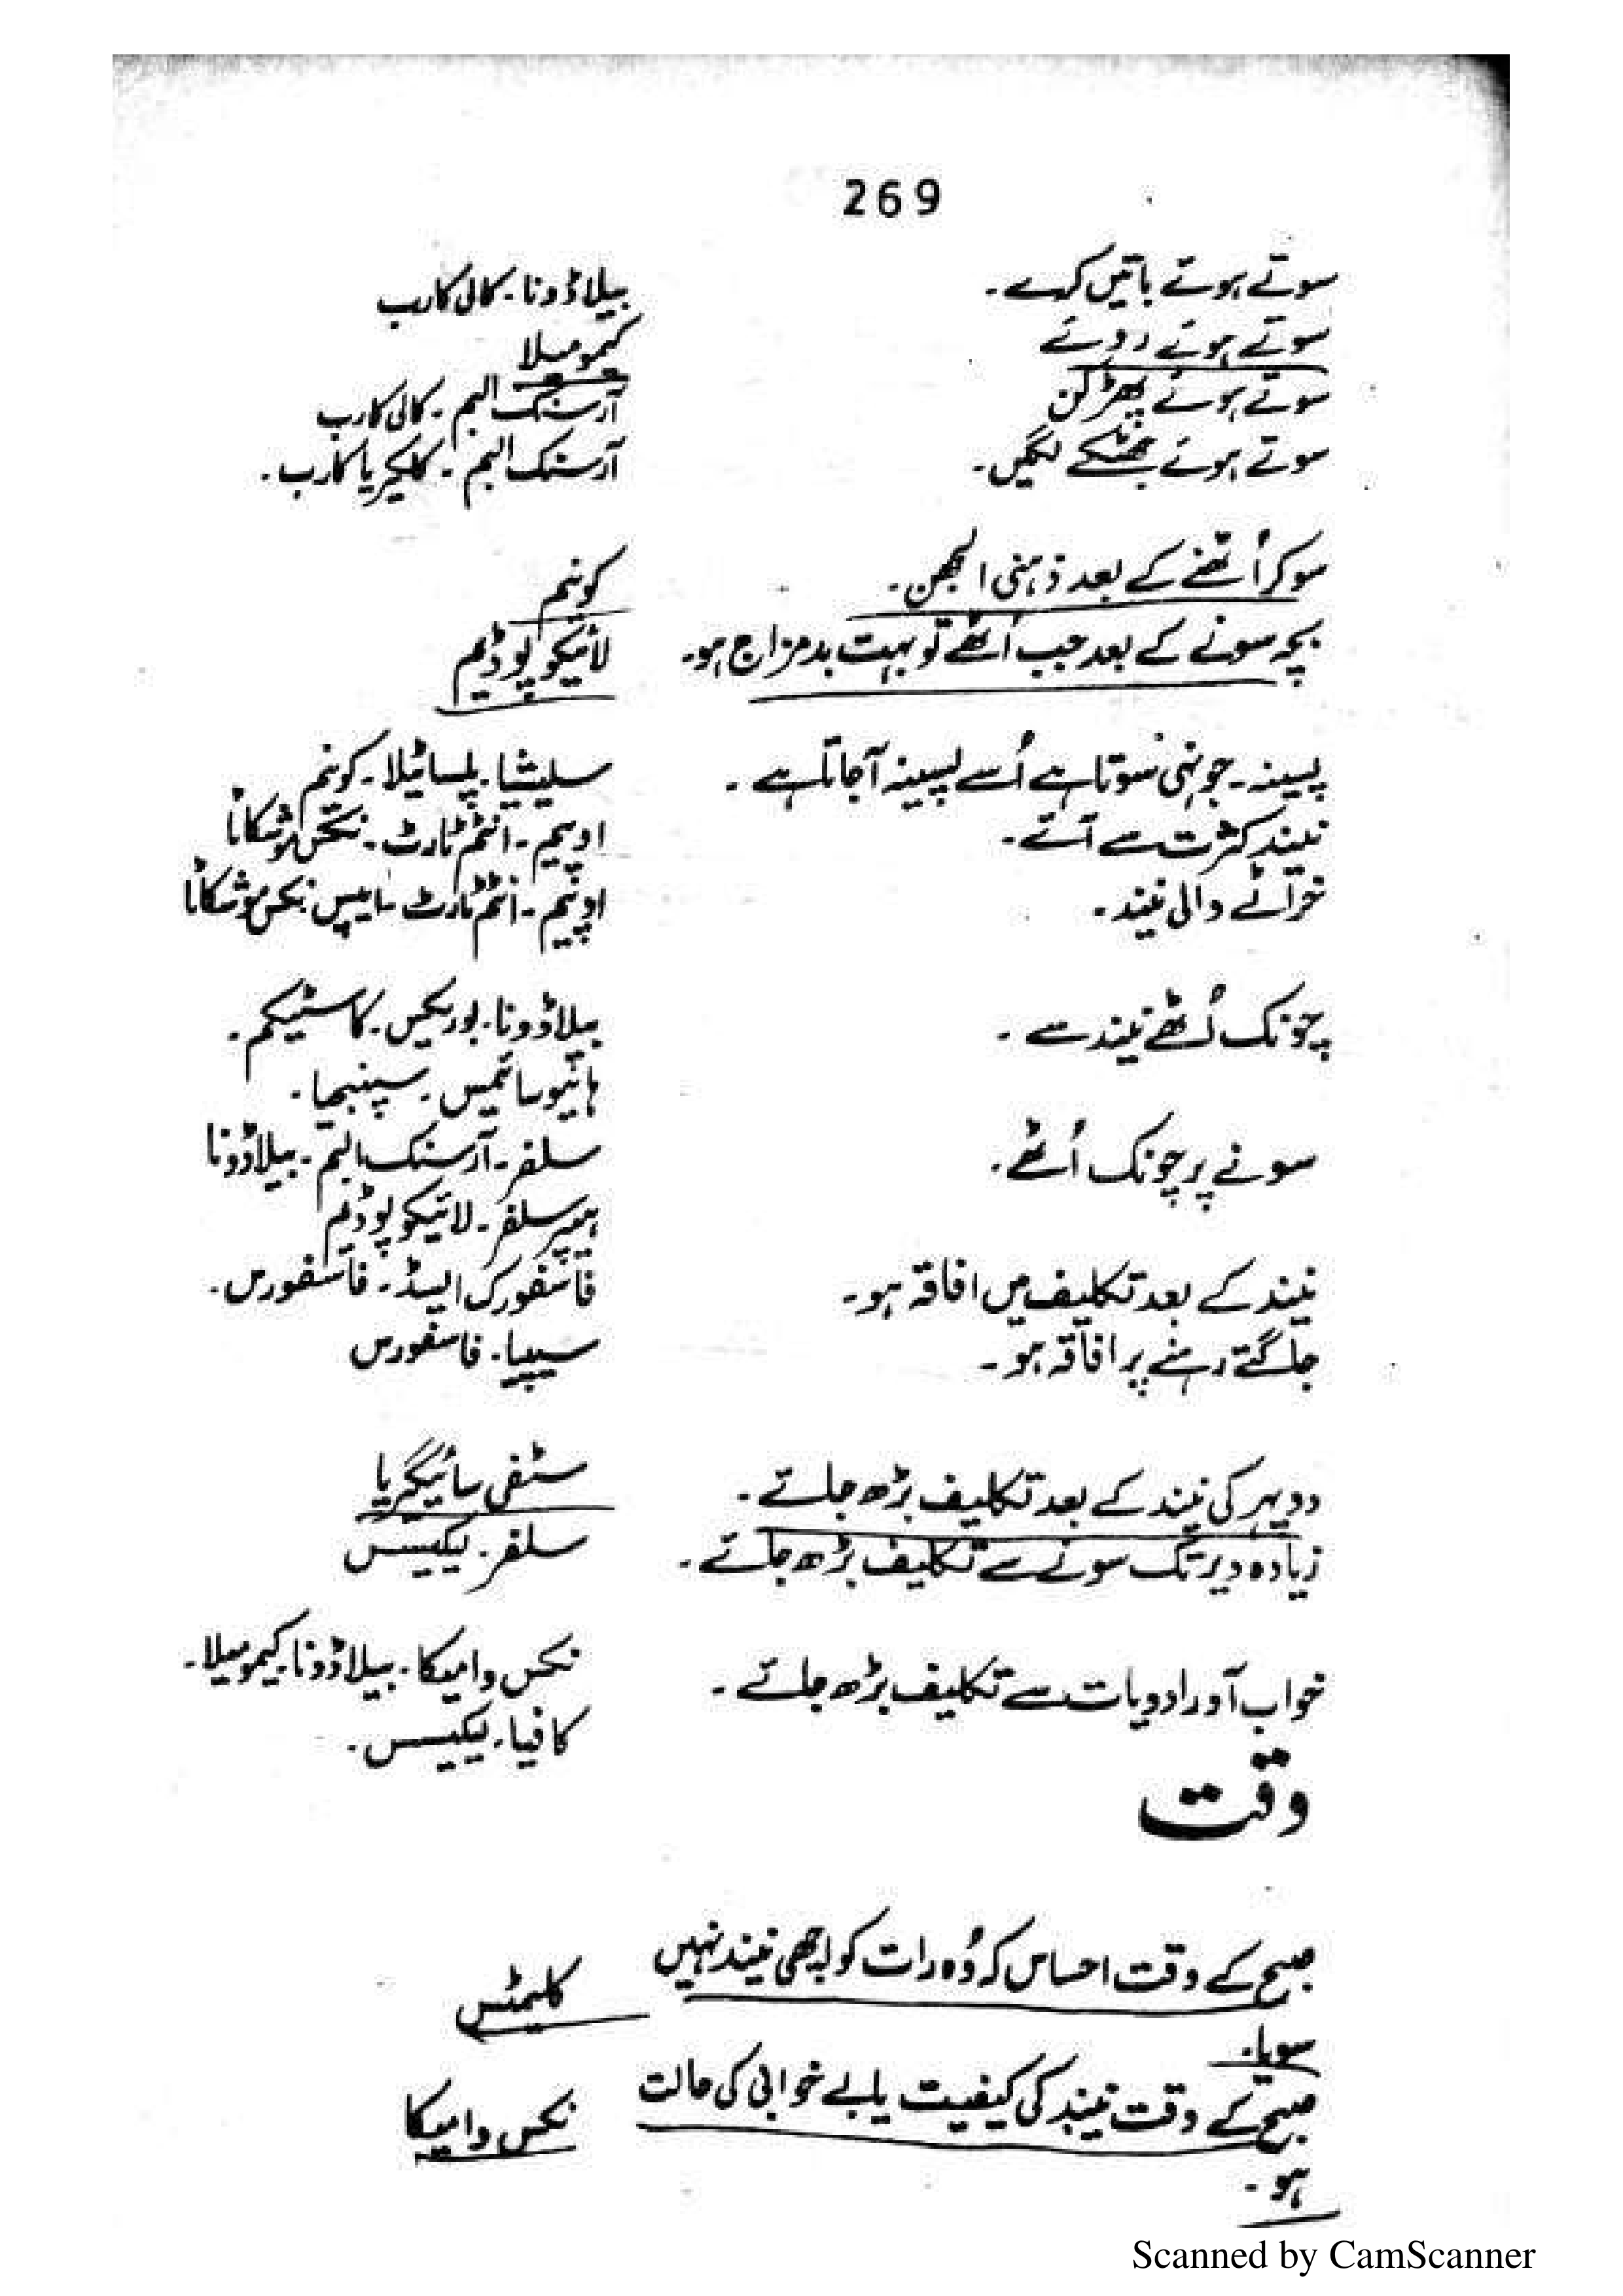 269
سوتے ہوئے باتیں کرے۔ بیلاڈونا۔ کالی کارب
سوتے ہوئے روئے کیمومیلا
سوتے ہوئے پھڑکن آرسنک البم۔ کالی کارب
سوتے ہوئے جھٹکے لگیں۔ آرسنک البم۔ کلکیریا کارب۔
سوکر اُٹھنے کے بعد ذہنی الجھن۔ کونیم
بچہ سونے کے بعد جب اُٹھے تو بہت بدمزاج ہو۔ لائیکوپوڈیم
پسینہ۔ جونہی سوتا ہے اُسے پسینہ آجاتا ہے۔ سلیشیا۔ پلساٹیلا۔ کونیم
نیند کثرت سے آئے۔ اوپیم۔ انٹم ٹارٹ۔ نکس موشکاٹا
خراٹے والی نیند۔ اوپیم۔ انٹم ٹارٹ۔ نکس موشکاٹا
چونک اُٹھے نیند سے۔ بیلاڈونا۔ بوریکس۔ کاسٹیکم۔
ہائیوسائمس۔ سپنجیا۔
سونے پر چونک اُٹھے۔ سلفر۔ آرسنک البم۔ بیلاڈونا
ہیپر سلفر۔ لائیکوپوڈیم
نیند کے بعد تکلیف میں افاقہ ہو۔ فاسفورک ایسڈ۔ فاسفورس۔
جاگتے رہنے پر افاقہ ہو۔ سیپیا۔ فاسفورس
دوپہر کی نیند کے بعد تکلیف بڑھ جائے۔ سٹفی سائیگیریا
زیادہ دیر تک سونے سے تکلیف بڑھ جائے۔ سلفر۔ لیکیسس
خواب آور ادویات سے تکلیف بڑھ جائے۔ نکس وامیکا۔ بیلاڈونا۔ کیمومیلا۔
کافیا۔ لیکیسس۔
وقت
صبح کے وقت احساس کہ وُہ رات کو اچھی نیند نہیں کلیمٹس
سویا۔
صبح کے وقت نیند کی کیفیت یا بے خوابی کی حالت نکس وامیکا
ہو۔
Scanned by CamScanner